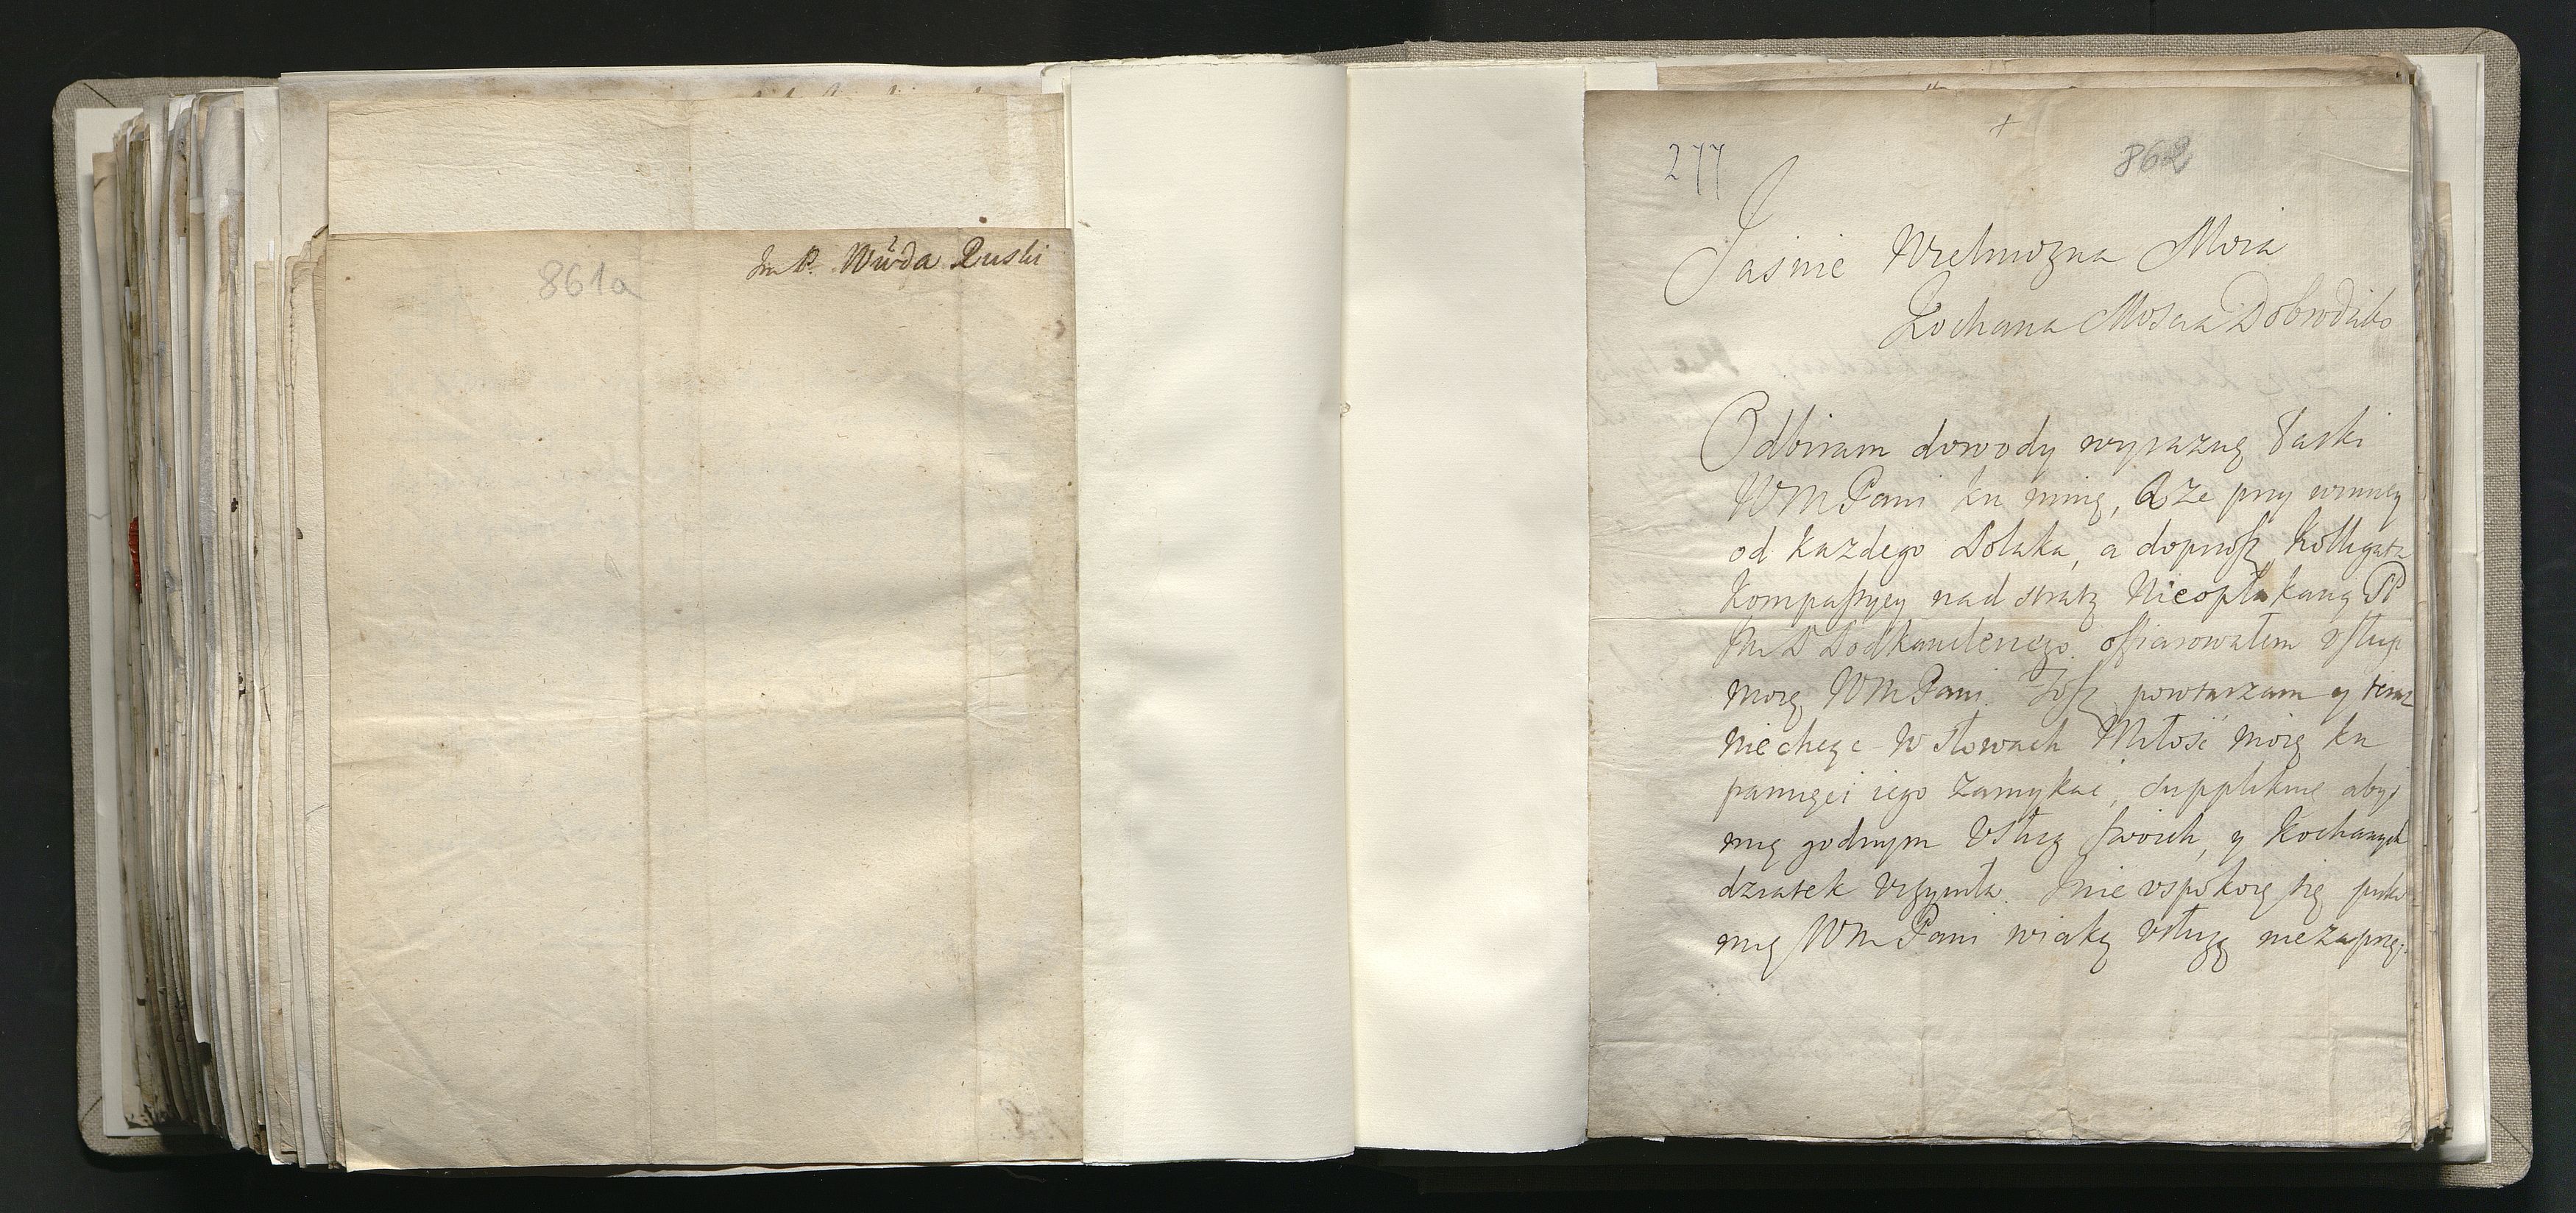 861a
Im P. Wwda Ruski
277
+
862
Jaśnie Wielmozna Moia
Kochana Mościa Dobrodziko
Odbiram dowody wyrazne łaski
WM Pani ku mnię, A ze przy winney
od kazdego Polaka, a dopiroß Kolligata
Kompaßyey nad stratą Nieopłakaną P
Im P Podkanclerzego offiarowałem vsług
moię WM Pani. Toß powtarzam y teraz
niechcąc w słowach Miłość moię ku
pamięci iego zamykać, suppliknię abyś
mię godnym Vsług swoich, y Kochanych
dziatek vczyniła. Inie vspokoię się puko
mię WM Pani wiaką vsługę niezaprzę: